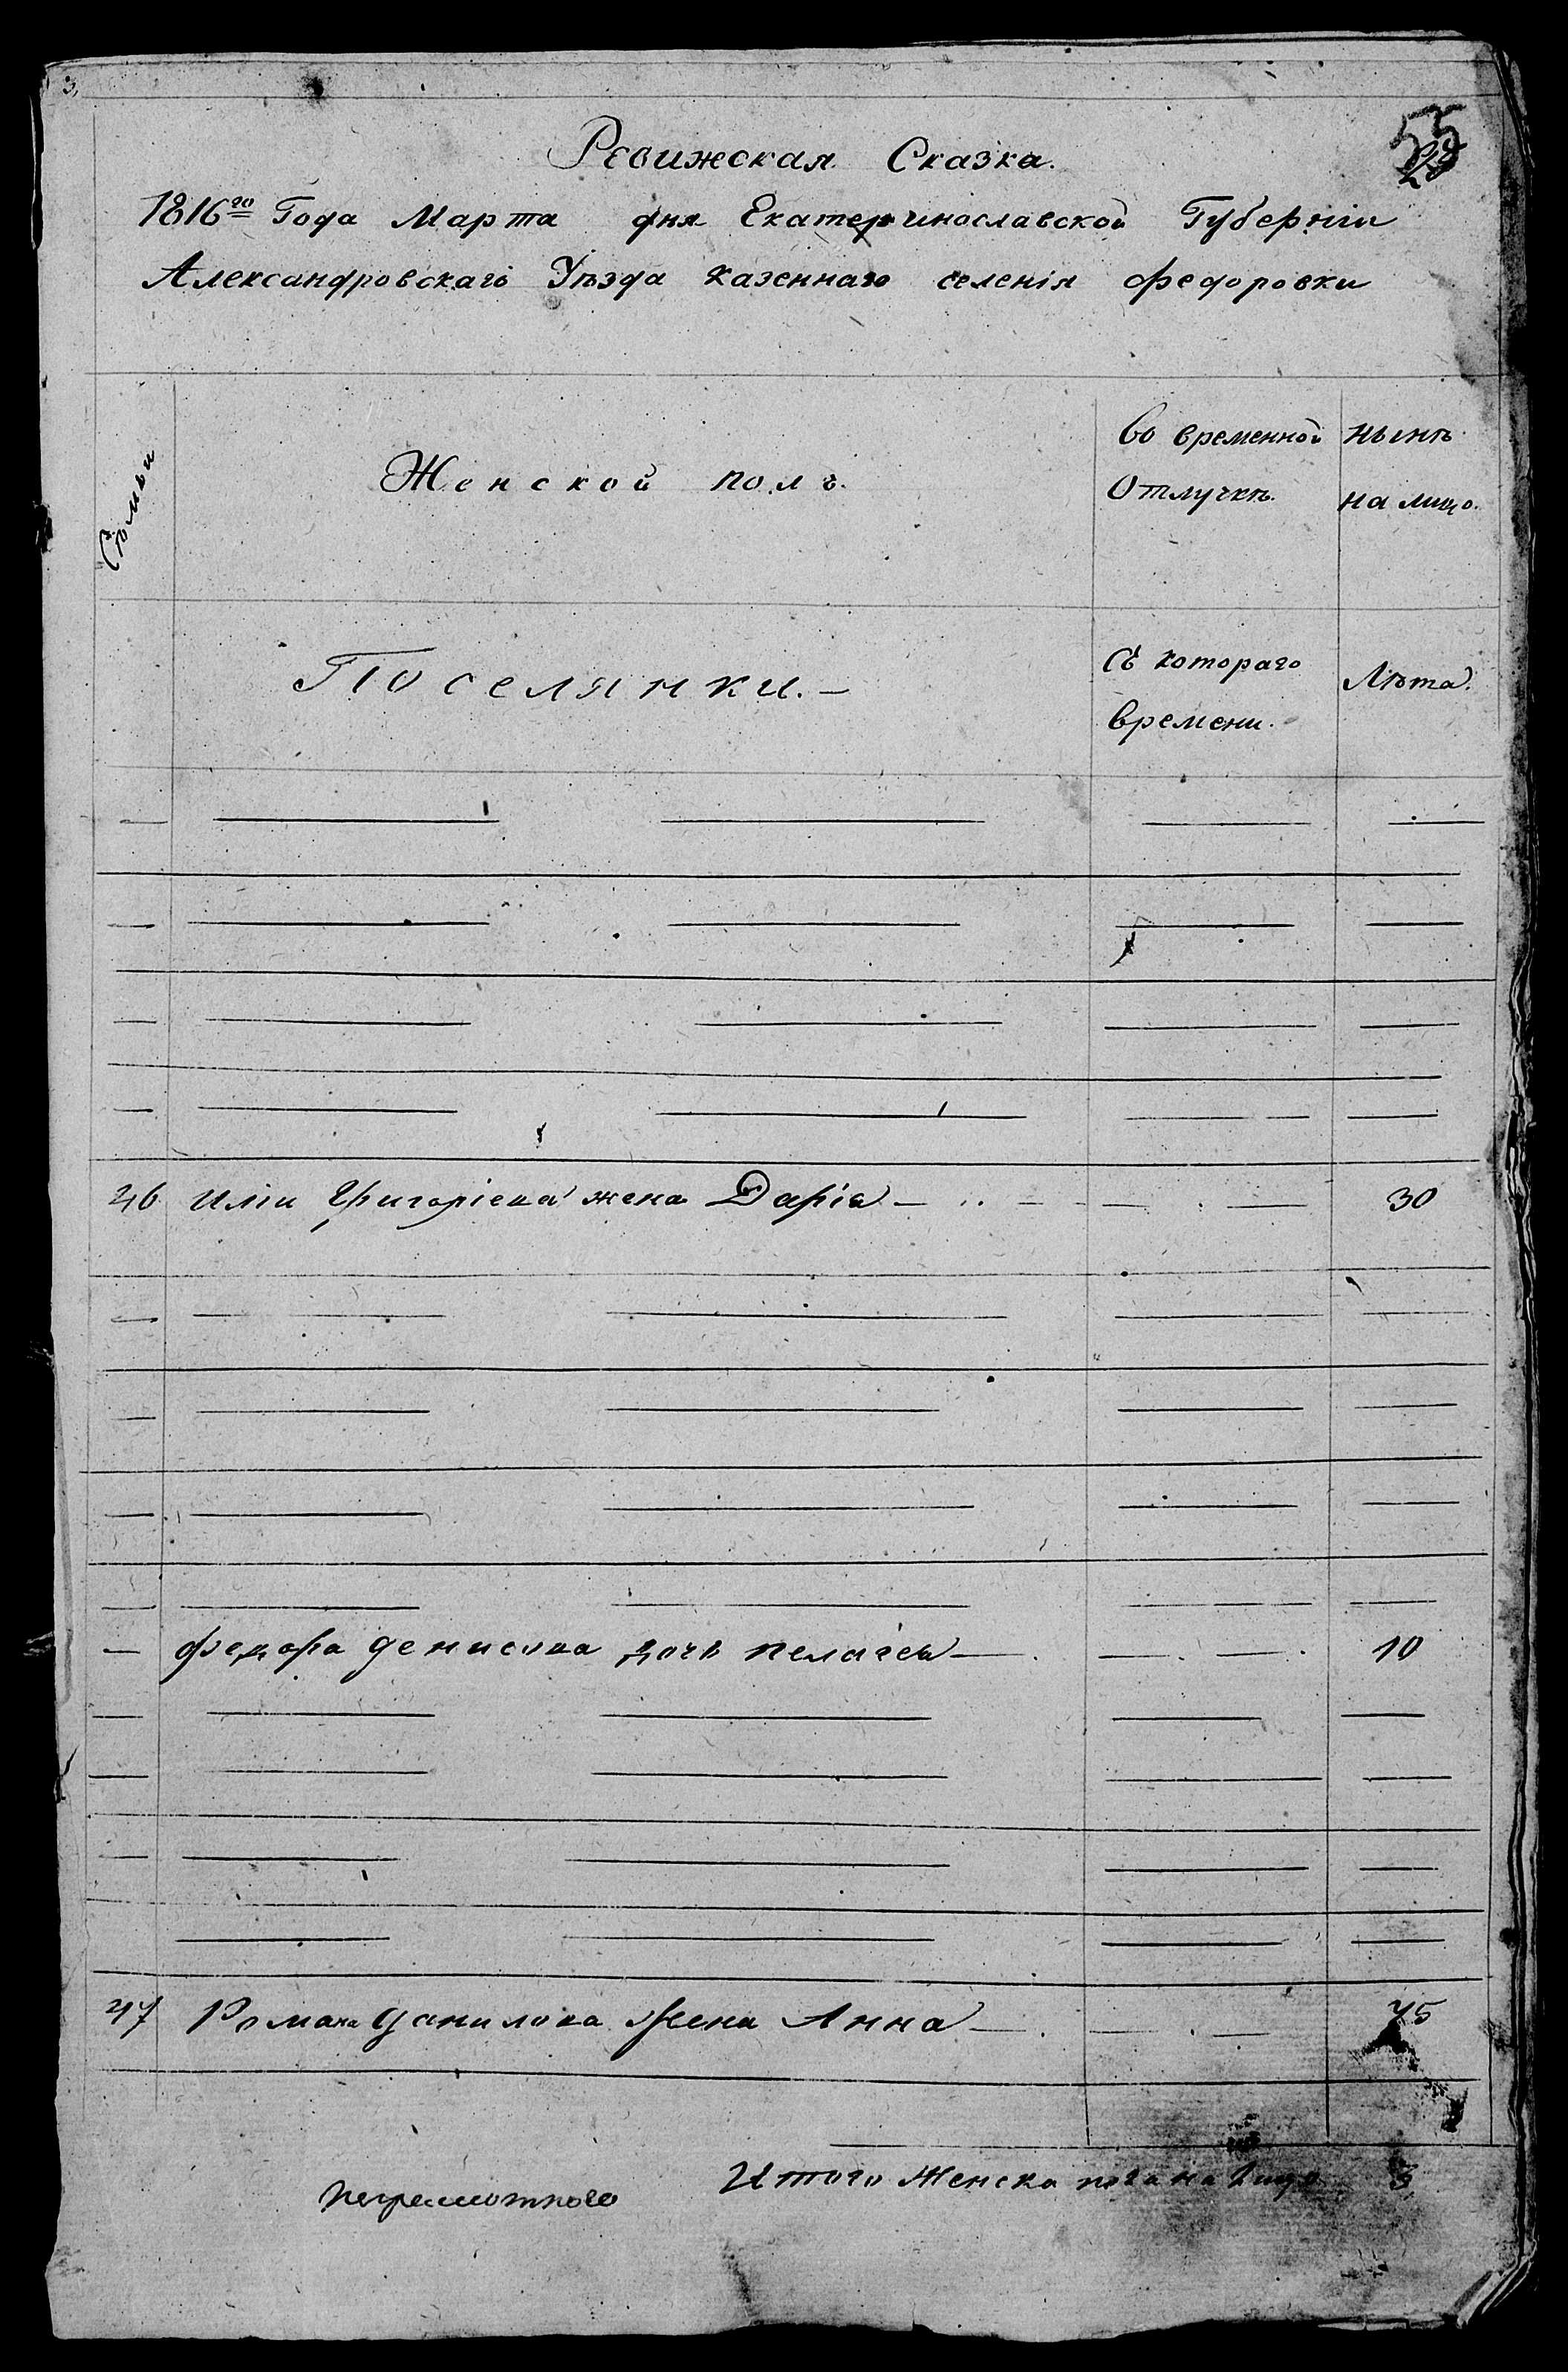 3.
55
Ревижская Сказка.
1816го Года Марта дня Екатеринославской Губерніи
Александровскаго Уѣзда казеннаго селенія федоровки
Семьи
Женской полъ.
во временной
Отлучкѣ.
нынѣ
на лицо.
Поселянки.
Съ котораго
времени.
Лѣта.
46 Иліи Григоріева жена Дарія 30
федора денисова дочь пелагея 10
47 Романа данилова жена Анна 75
Итого Женска пола на лицо 3
неграмотного